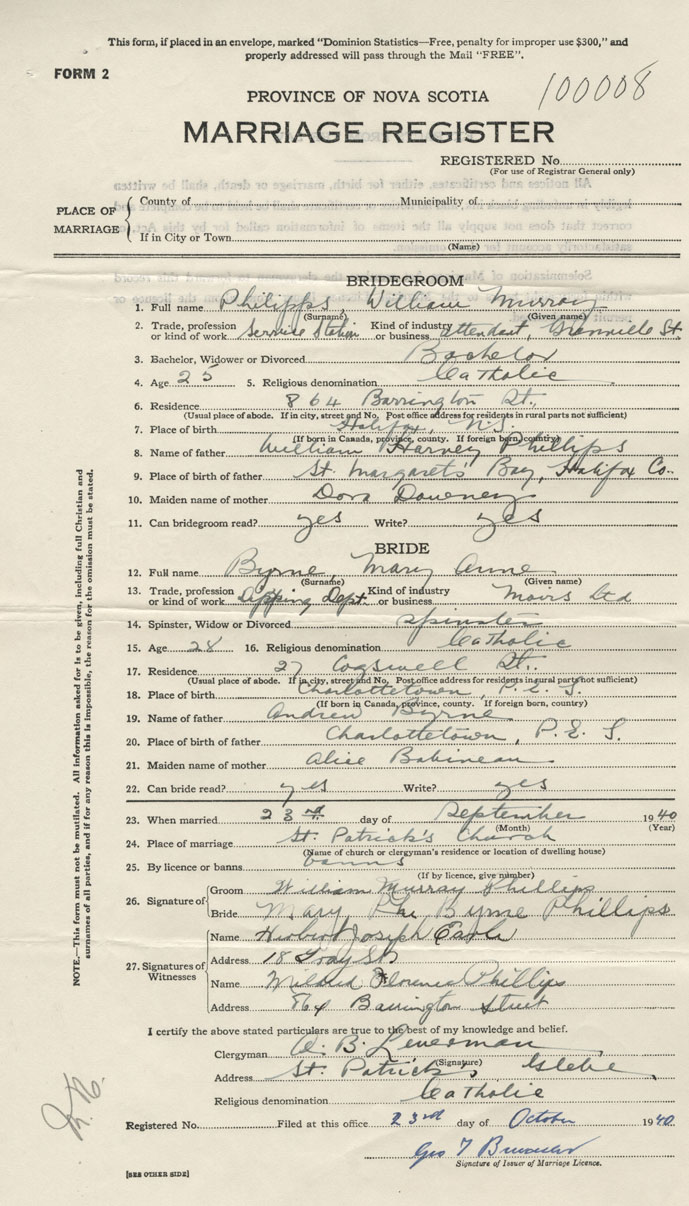 This form, if placed in an envelope, marked "Dominion Statistics—Free, penalty for improper use $300," and
properly addressed will pass through the Mail "FREE".
FORM 2
100008
PROVINCE OF NOVA SCOTIA
MARRIAGE REGISTER
REGISTERED No.
(For use of Registrar General only)
PLACE OF MARRIAGE
County of Municipality of
If in City or Town
(Name)
BRIDEGROOM
1. Full name Philipps, William Murray
(Surname) (Given name)
2. Trade, profession or kind of work Service Station Kind of industry or business attendant, Granville St.
3. Bachelor, Widower or Divorced Bachelor
4. Age 25 5. Religious denomination Catholic
6. Residence 864 Barrington St.
(Usual place of abode. If in city, street and No. Post office address for residents in rural parts not sufficient)
7. Place of birth Halifax, N.S.
(If born in Canada, province, county. If foreign born, country)
8. Name of father William Harvey Phillips
9. Place of birth of father St. Margaret's Bay, Halifax Co.
10. Maiden name of mother Dora Downey
11. Can bridegroom read? yes Write? yes
BRIDE
12. Full name Byrne, Mary Anne
(Surname) (Given name)
13. Trade, profession or kind of work Dipping Dept. Kind of industry or business Moirs Ltd
14. Spinster, Widow or Divorced Spinster
15. Age 28 16. Religious denomination Catholic
17. Residence 27 Cogswell St.
(Usual place of abode. If in city, street and No. Post office address for residents in rural parts not sufficient)
18. Place of birth Charlottetown, P.E.I.
(If born in Canada, province, county. If foreign born, country)
19. Name of father Andrew Byrne
20. Place of birth of father Charlottetown, P.E.I.
21. Maiden name of mother Alice Babineau
22. Can bride read? yes Write? yes
23. When married 23rd day of September 1940
(Month) (Year)
24. Place of marriage St. Patrick's Church
(Name of church or clergyman's residence or location of dwelling house)
25. By licence or banns banns
(If by licence, give number)
26. Signature of
Groom William Murray Phillips
Bride Mary Byrne Phillips
27. Signatures of Witnesses
Name Herbert Joseph
Address 18 St
Name Mildred Florence Phillips
Address 864 Barrington Street
I certify the above stated particulars are true to the best of my knowledge and belief.
Clergyman
(Signature)
Address St. Patrick's Glebe
Religious denomination Catholic
Registered No. Filed at this office 23rd day of October 1940
Geo
Signature of Issuer of Marriage Licence.
[SEE OTHER SIDE]
NOTE.—This form must not be mutilated. All information asked for is to be given, including full Christian and
surnames of all parties, and if for any reason this is impossible, the reason for the omission must be stated.